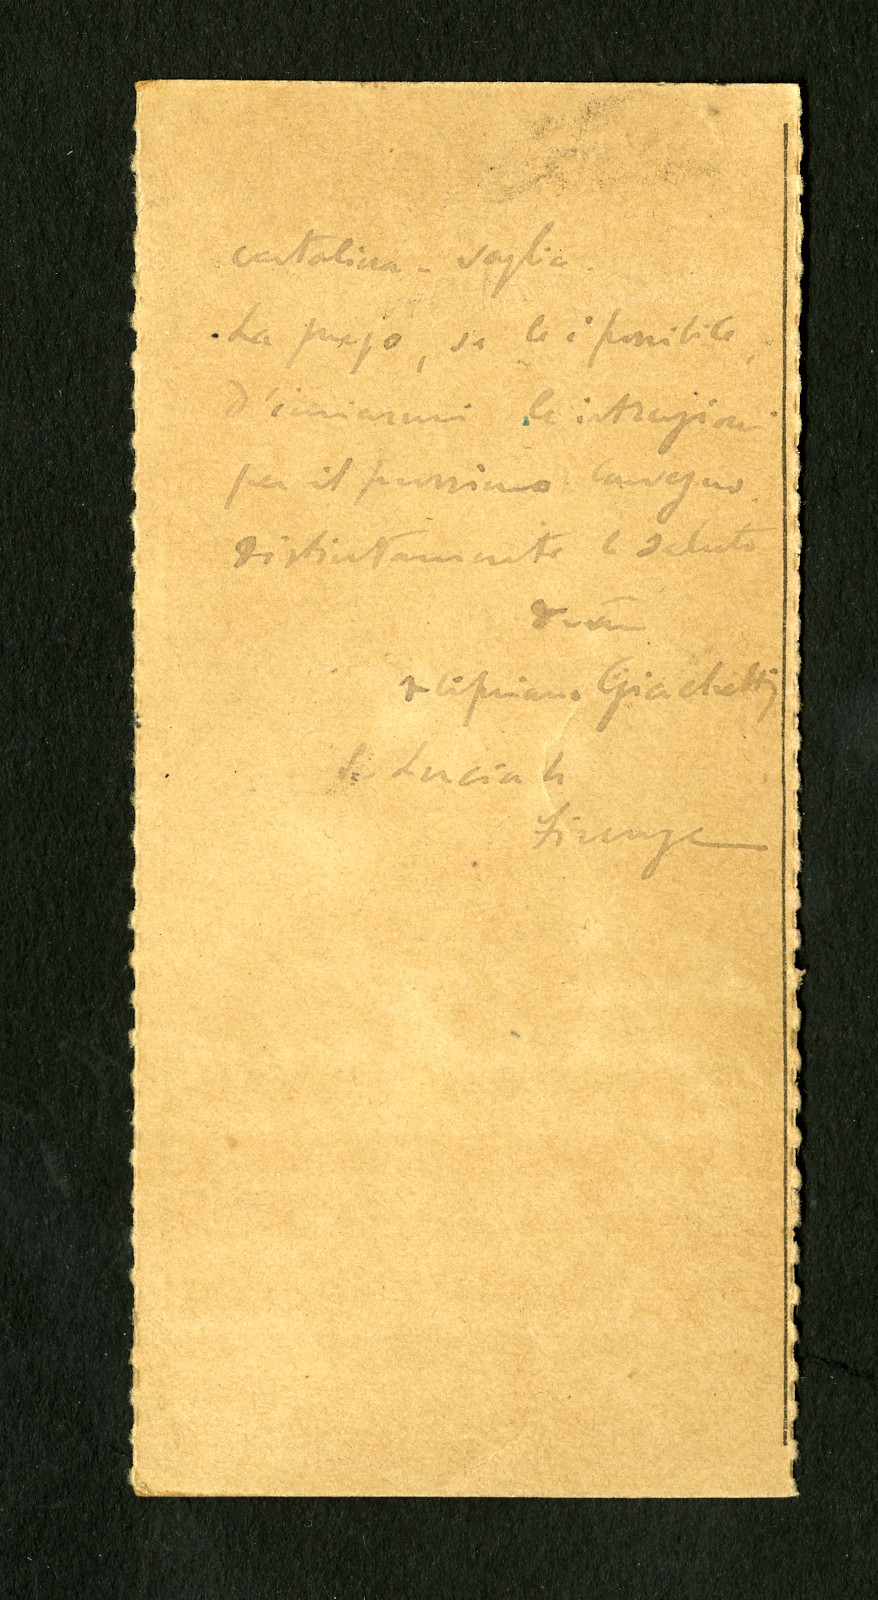 cartolina-vaglia.
La prego, se le è possibile,
d'inviarmi le istruzioni
per il prossimo convegno.
Distintamente la saluto
Cipriano Giachetti
S. Lucia 6
Firenze